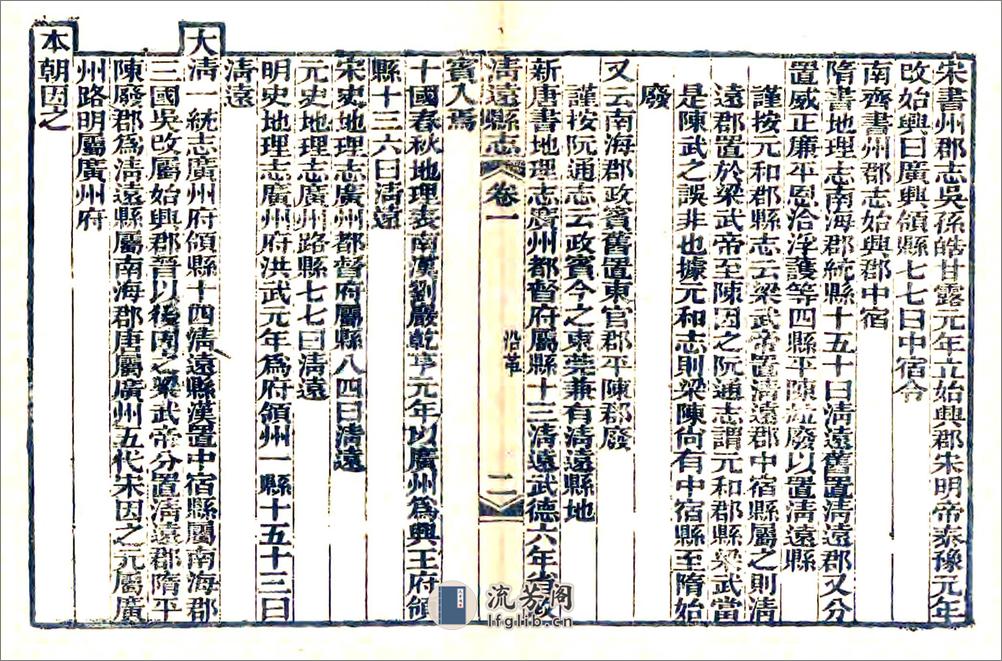 宋書州郡志吳孫皓甘露元年立始興郡宋明帝泰豫元年
改始興曰廣興領縣七七曰中宿令
南齊書州郡志始興郡中宿
隋書地理志南海郡統縣十五十曰清遠舊置清遠郡又分
置威正廉平恩洽浮護等四縣平陳並廢以置清遠縣
謹按元和郡縣志云梁武帝置清遠郡中宿縣屬之則清
遠郡置於梁武帝至陳因之阮通志謂元和郡縣梁武當
是陳武之誤非也據元和志則梁陳尚有中宿縣至隋始
廢
又云南海郡政賓舊置東官郡平陳郡廢
謹按阮通志云政賓今之東莞兼有清遠縣地
新唐書地理志廣州都督府屬縣十三清遠武德六年省政
清遠縣志 卷一 沿革 二
賓入焉
十國春秋地理表南漢劉巖乾亨元年以廣州為興王府領
縣十三六曰清遠
宋史地理志廣州都督府屬縣八四曰清遠
元史地理志廣州路縣七七曰清遠
明史地理志廣州府洪武元年為府領州一縣十五十三曰
清遠
大清一統志廣州府領縣十四清遠縣漢置中宿縣屬南海郡
三國吳改屬始興郡晉以後因之梁武帝分置清遠郡隋平
陳廢郡為清遠縣屬南海郡唐屬廣州五代宋因之元屬廣
州路明屬廣州府
本朝因之
流芳阁
lfglib.cn